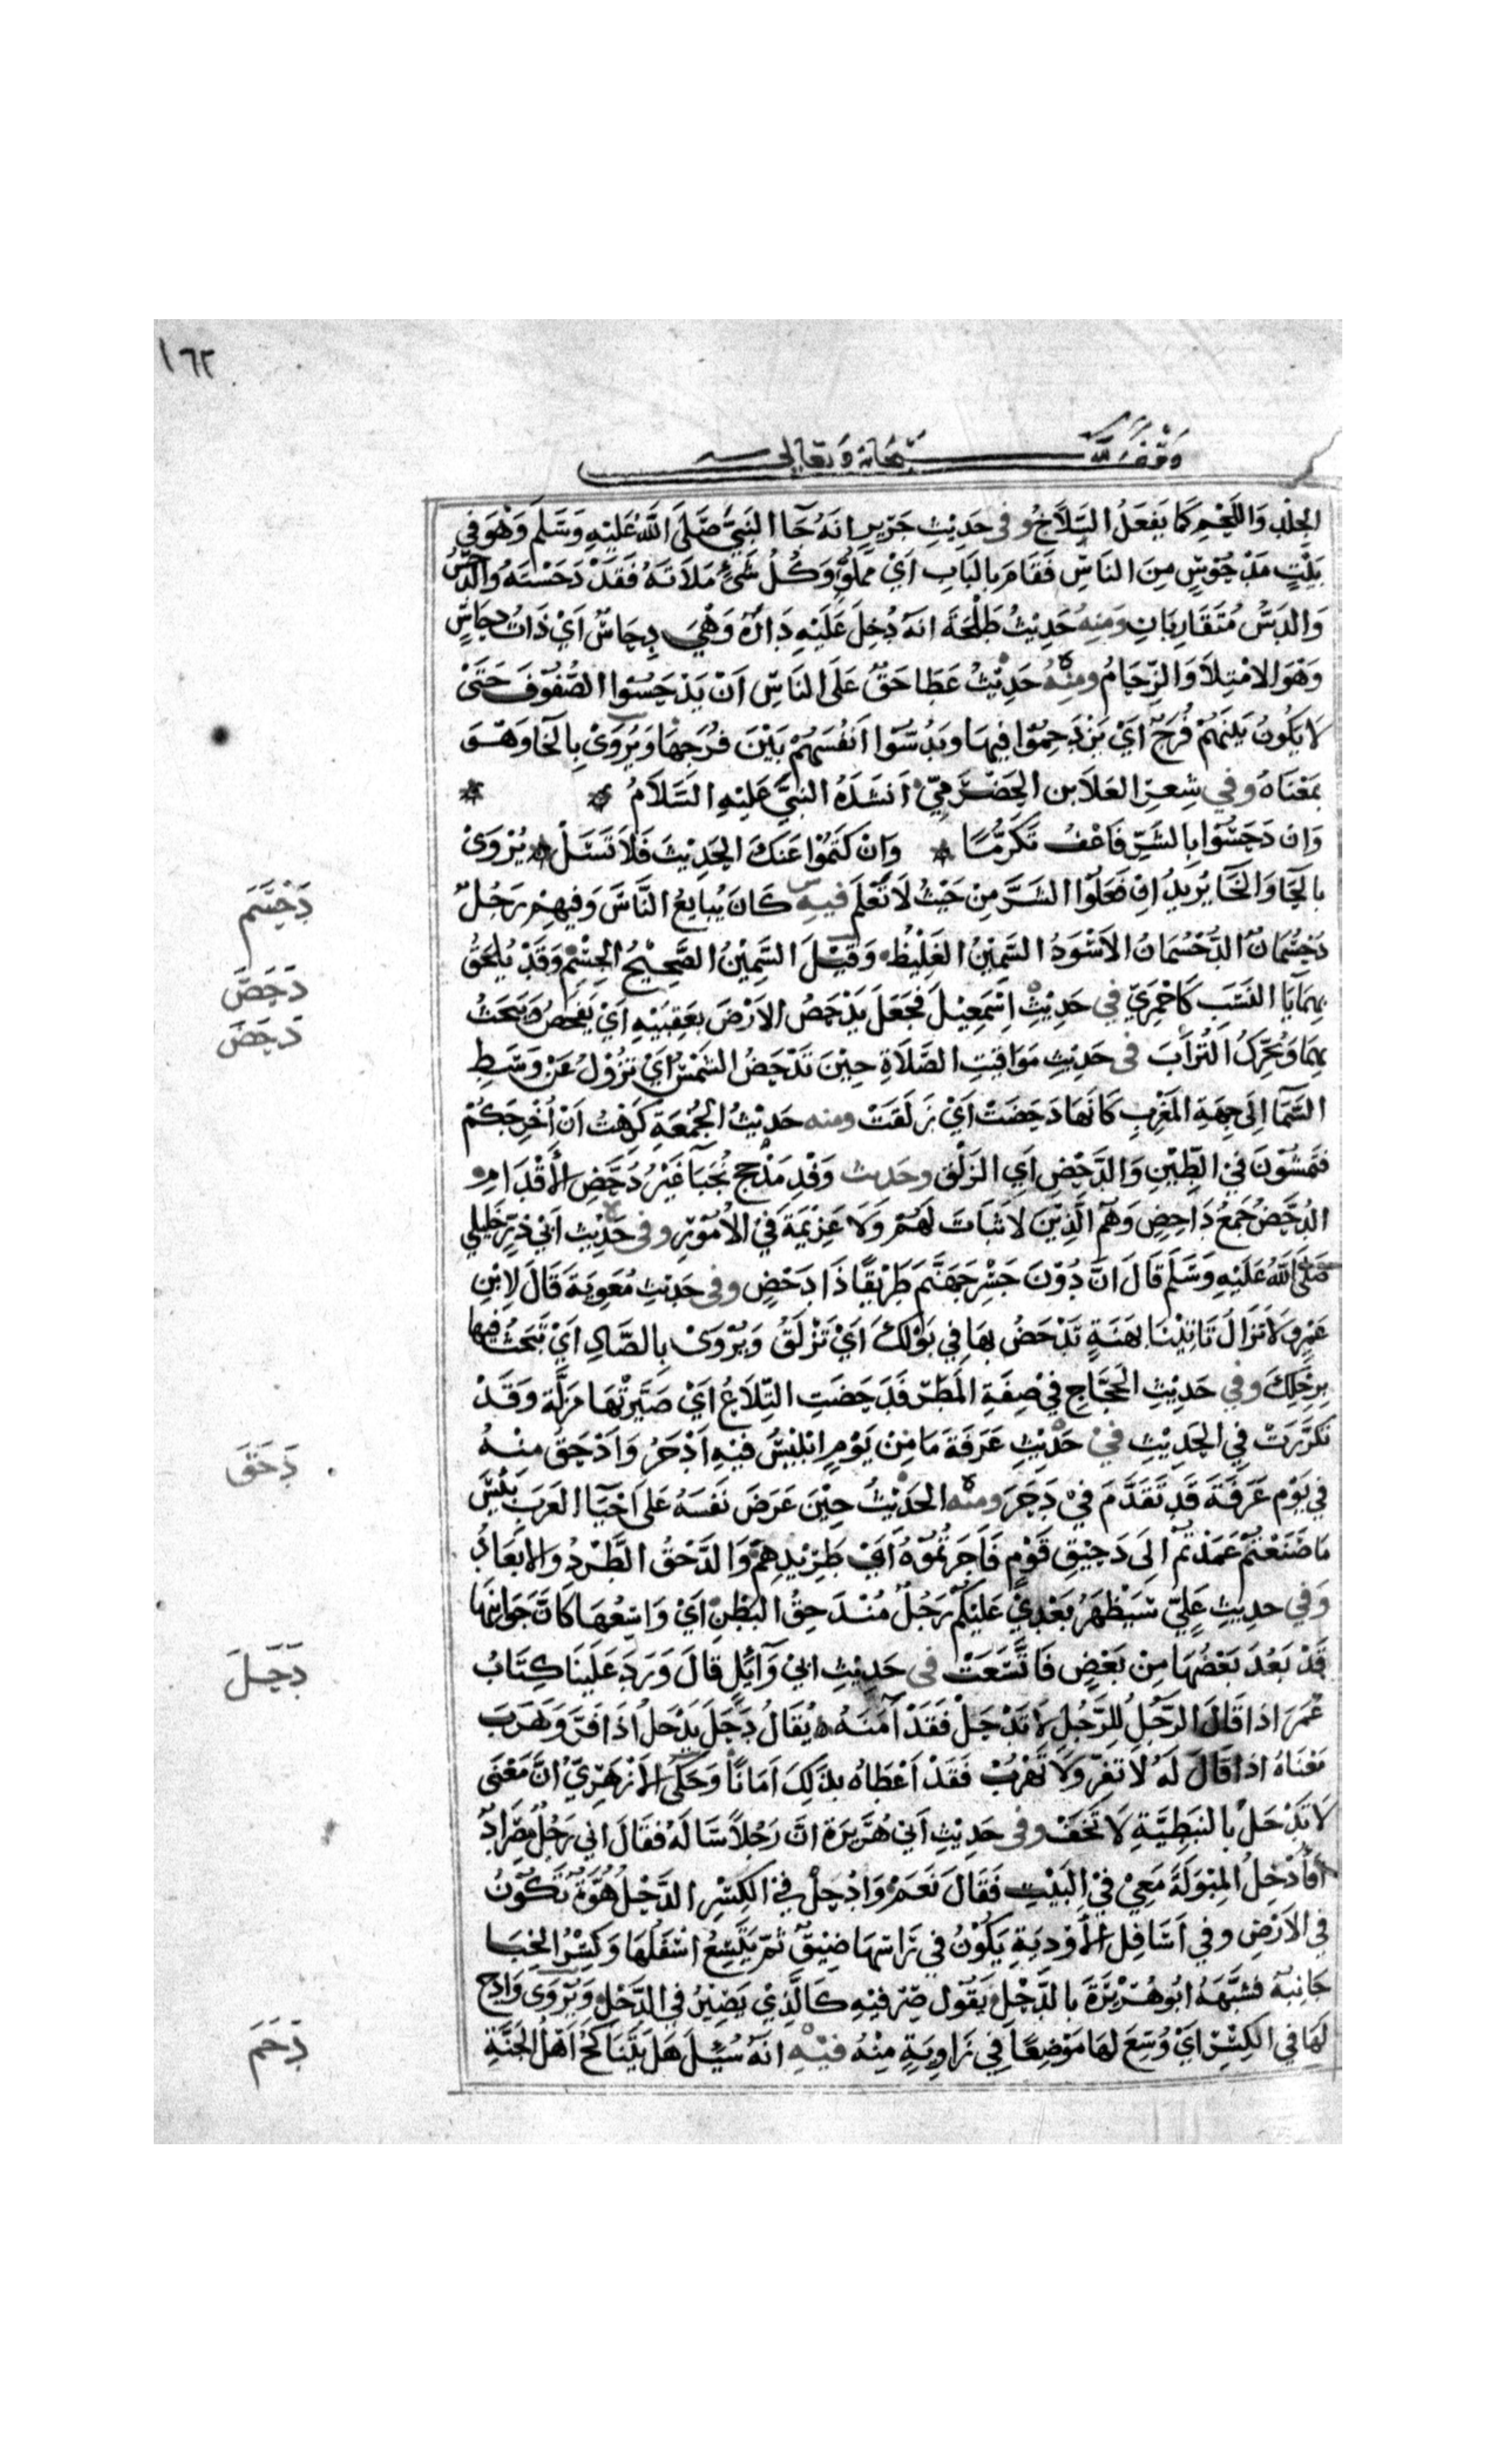 ١٦٢
وقف لله سبحانه وتعالى
الجلد واللحم كما يفعل السلاخ وفي حديث جرير انه جا النبي صلى الله عليه وسلم وهو في
بيت مدحوس من الناس فقام بالباب اي مملو وكل شئ ملاته فقد دحسته والدحس
والدس متقاربان ومنه حديث طلحة انه دخل عليه داره وهي دحاس اي ذات دحاس
وهو الامتلا والزحام ومنه حديث عطا حق على الناس ان يدحسوا الصفوف حتى
لا يكون بينهم فرج اي يزدحموا فيها ويدسوا انفسهم بين فرجها ويروى بالخا وهو
بمعناه وفي شعر العلا بن الحضرمي انشده النبي عليه السلام
وان دحسوا بالشر فاعف تكرما وان كتموا عنك الحديث فلا تسل يروى
بالحا والخا يريد ان فعلوا الشر من حيث لا تعلم فيه كان يبايع الناس وفيهم رجل
دحسم
دحسمان الدحسمان الاسود السمين الغليظ وقيل السمين الصحيح الجسم وقد يلحق
بهما يا النسب كاحمري في حديث اسمعيل فجعل يدحص الارض بعقبيه اي يفحص ويبحث
دحص
بهما ويحرك التراب في حديث مواقيت الصلاة حين تدحض الشمس اي تزول عن وسط
دحض
السما الى جهة المغرب كانها دحضت اي زلقت ومنه حديث الجمعة كرهت ان اخرجكم
فتمشون في الطين والدحض اي الزلق وحديث وفد مذحج نجبا غير دحض الاقدام
الدحض جمع داحض وهم الذين لا ثبات لهم ولا عزيمة في الامور وفي حديث ابي ذر خليلي
صلى الله عليه وسلم قال ان دون جسر جهنم طريقا ذا دحض وفي حديث معوية قال لابن
عمرو لا تزال تاتينا بهنة تدحض بها في بولك اي تزلق ويروى بالصاد اي تبحث فيها
برجلك وفي حديث الحجاج في صفة المطر فدحضت التلاع اي صيرتها مزلة وقد
تكررت في الحديث في حديث عرفة ما من يوم ابليس فيه ادحر وادحق منه
دحق
في يوم عرفة قد تقدم في دحر ومنه الحديث حين عرض نفسه على احيا العرب بئس
ما صنعتم عمدتم الى دحيق قوم فاجرتموه اي طريدهم والدحق الطرد والابعاد
وفي حديث علي سيظهر بعدي عليكم رجل مندحق البطن اي واسعها كان جوانبها
قد بعد بعضها من بعض فاتسعت في حديث ابي وائل قال ورد علينا كتاب
دحل
عمر اذا قال الرجل للرجل لا تدحل فقد آمنه يقال دحل يدحل اذا فر وهرب
معناه اذا قال له لا تفر ولا تهرب فقد اعطاه بذلك امانا وحكى الازهري ان معنى
لا تدحل بالنبطية لا تخف وفي حديث ابي هريرة ان رجلا ساله فقال اني رجل مصراد
أفأدخل المبولة معي في البيت فقال نعم وادحل في الكسر الدحل هوة تكون
في الارض وفي اسافل الأودية يكون في راسها ضيق ثم يتسع اسفلها وكسر الخبا
جانبه فشبهه ابو هريرة بالدحل يقول صر فيه كالذي يصير في الدحل ويروى وادح
لها في الكسر اي وسع لها موضعا في زاوية منه فيه انه سئل هل يتناكح أهل الجنة
دحم